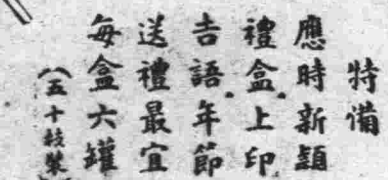 特備
應時新穎
禮盒上印
吉語年節
送禮最宜
每盒六罐
(五十枝裝